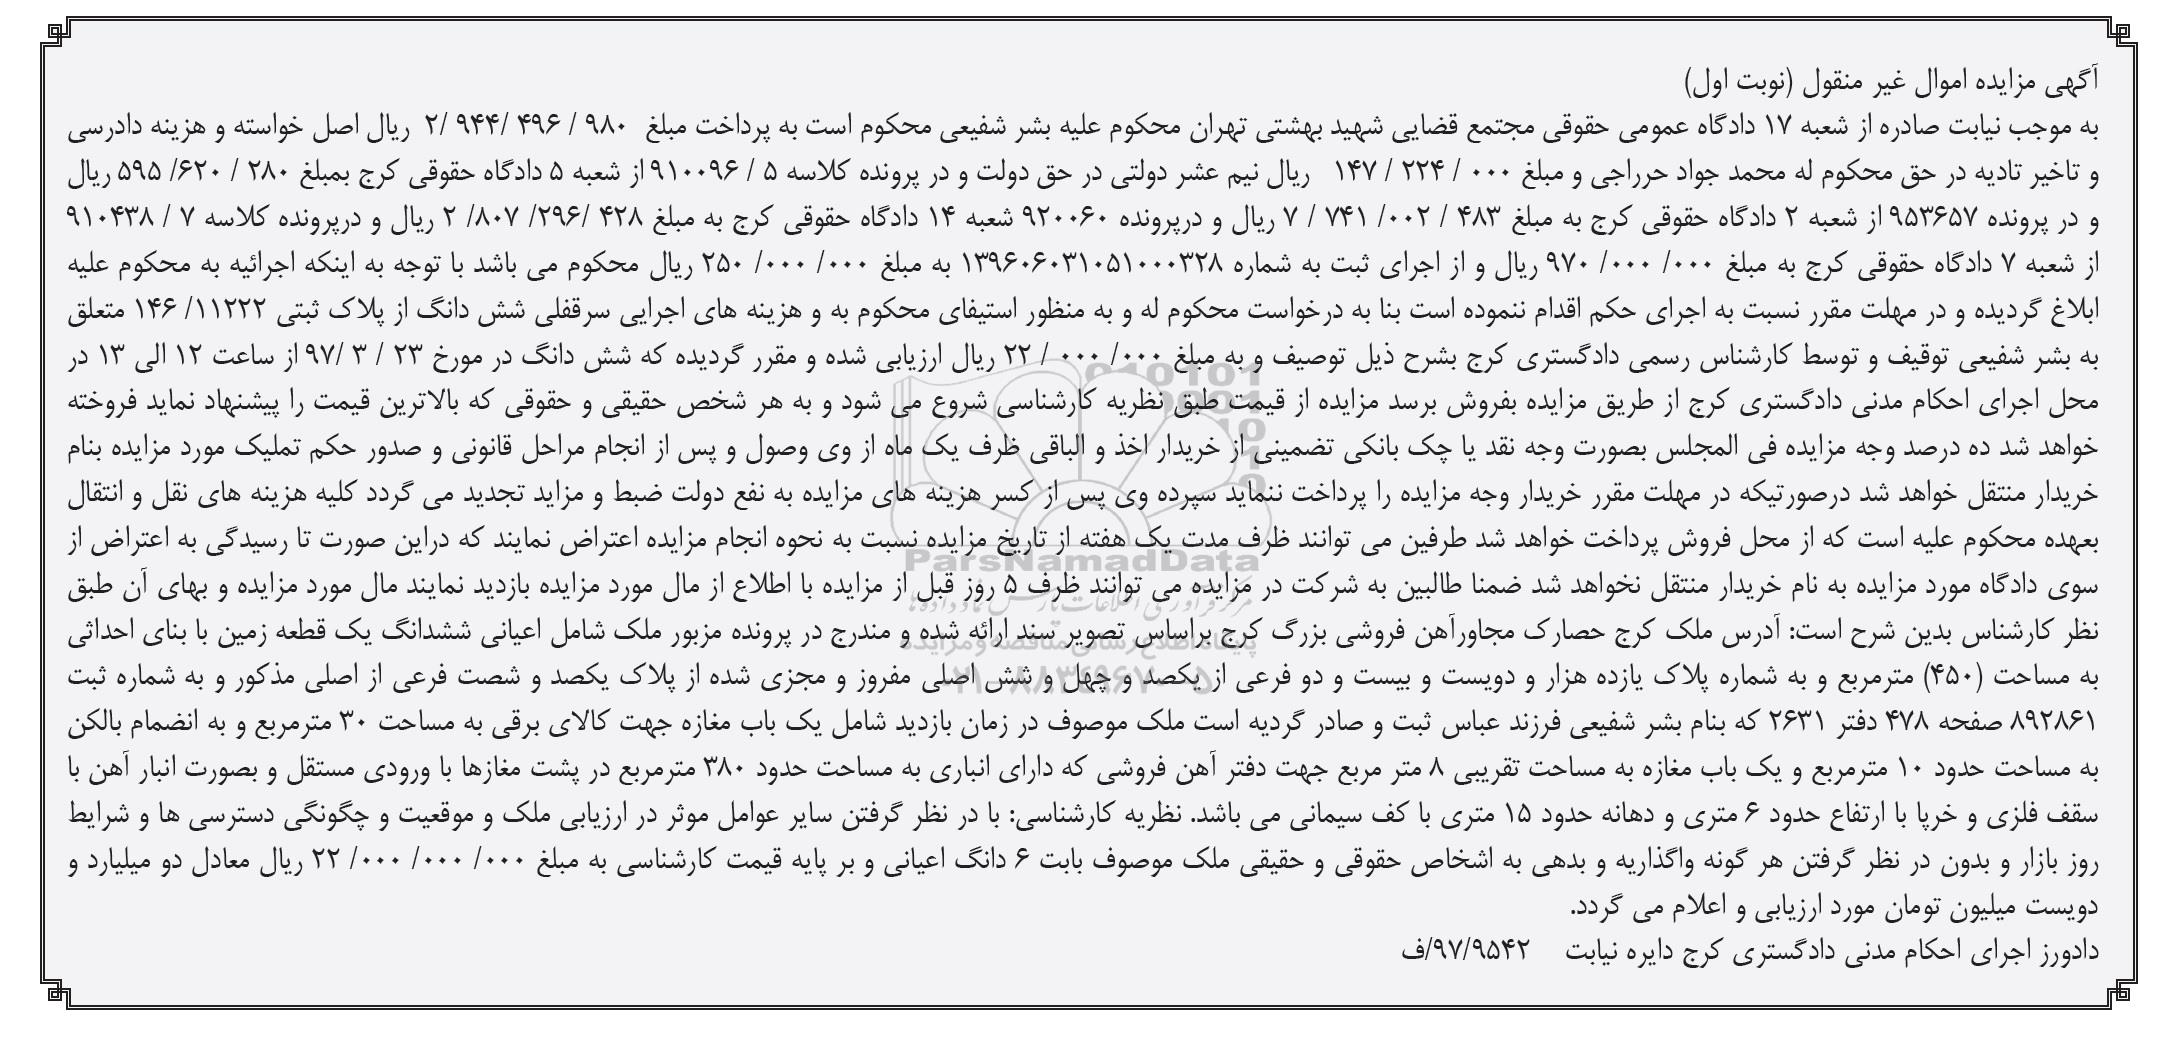 آگهی مزایده اموال غیر منقول (نوبت اول)
به موجب نیابت صادره از شعبه ۱۷ دادگاه عمومی حقوقی مجتمع قضایی شهید بهشتی تهران محکوم علیه بشر شفیعی محکوم است به پرداخت مبلغ ۹۸۰ / ۴۹۶ /۹۴۴ /۲ ریال اصل خواسته و هزینه دادرسی
و تاخیر تادیه در حق محکوم له محمد جواد حرراجی و مبلغ ۰۰۰ / ۲۲۴ / ۱۴۷ ریال نیم عشر دولتی در حق دولت و در پرونده کلاسه ۵ / ۹۱۰۰۹۶ از شعبه ۵ دادگاه حقوقی کرج بمبلغ ۲۸۰ / ۶۲۰/ ۵۹۵ ریال
و در پرونده ۹۵۳۶۵۷ از شعبه ۲ دادگاه حقوقی کرج به مبلغ ۴۸۳ / ۰۰۲/ ۷۴۱ / ۷ ریال و درپرونده ۹۲۰۰۶۰ شعبه ۱۴ دادگاه حقوقی کرج به مبلغ ۴۲۸ /۲۹۶/ ۸۰۷/ ۲ ریال و درپرونده کلاسه ۷ / ۹۱۰۴۳۸
از شعبه ۷ دادگاه حقوقی کرج به مبلغ ۰۰۰/ ۰۰۰/ ۹۷۰ ریال و از اجرای ثبت به شماره ۱۳۹۶۰۶۰۳۱۰۵۱۰۰۰۳۲۸ به مبلغ ۰۰۰/ ۰۰۰/ ۲۵۰ ریال محکوم می باشد با توجه به اینکه اجرائیه به محکوم علیه
ابلاغ گردیده و در مهلت مقرر نسبت به اجرای حکم اقدام ننموده است بنا به درخواست محکوم له و به منظور استیفای محکوم به و هزینه های اجرایی سرقفلی شش دانگ از پلاک ثبتی ۱۱۲۲۲/ ۱۴۶ متعلق
به بشر شفیعی توقیف و توسط کارشناس رسمی دادگستری کرج بشرح ذیل توصیف و به مبلغ ۰۰۰/ ۰۰۰ / ۲۲ ریال ارزیابی شده و مقرر گردیده که شش دانگ در مورخ ۲۳ / ۳ /۹۷ از ساعت ۱۲ الی ۱۳ در
محل اجرای احکام مدنی دادگستری کرج از طریق مزایده بفروش برسد مزایده از قیمت طبق نظریه کارشناسی شروع می شود و به هر شخص حقیقی و حقوقی که بالاترین قیمت را پیشنهاد نماید فروخته
خواهد شد ده درصد وجه مزایده فی المجلس بصورت وجه نقد یا چک بانکی تضمینی از خریدار اخذ و الباقی ظرف یک ماه از وی وصول و پس از انجام مراحل قانونی و صدور حکم تملیک مورد مزایده بنام
خریدار منتقل خواهد شد درصورتیکه در مهلت مقرر خریدار وجه مزایده را پرداخت ننماید سپرده وی پس از کسر هزینه های مزایده به نفع دولت ضبط و مزاید تجدید می گردد کلیه هزینه های نقل و انتقال
بعهده محکوم علیه است که از محل فروش پرداخت خواهد شد طرفین می توانند ظرف مدت یک هفته از تاریخ مزایده نسبت به نحوه انجام مزایده اعتراض نمایند که دراین صورت تا رسیدگی به اعتراض از
ParsNamadData
سوی دادگاه مورد مزایده به نام خریدار منتقل نخواهد شد ضمنا طالبین به شرکت در مزایده می توانند ظرف ۵ روز قبل از مزایده با اطلاع از مال مورد مزایده بازدید نمایند مال مورد مزایده و بهای آن طبق
مرکز فرآوری اطلاعات پارس نماد داده‌ها
نظر کارشناس بدین شرح است: آدرس ملک کرج حصارک مجاورآهن فروشی بزرگ کرج براساس تصویر سند ارائه شده و مندرج در پرونده مزبور ملک شامل اعیانی ششدانگ یک قطعه زمین با بنای احداثی
پایگاه اطلاع رسانی مناقصه و مزایده
به مساحت (۴۵۰) مترمربع و به شماره پلاک یازده هزار و دویست و بیست و دو فرعی از یکصد و چهل و شش اصلی مفروز و مجزی شده از پلاک یکصد و شصت فرعی از اصلی مذکور و به شماره ثبت
۸۹۲۸۶۱ صفحه ۴۷۸ دفتر ۲۶۳۱ که بنام بشر شفیعی فرزند عباس ثبت و صادر گردیه است ملک موصوف در زمان بازدید شامل یک باب مغازه جهت کالای برقی به مساحت ۳۰ مترمربع و به انضمام بالکن
به مساحت حدود ۱۰ مترمربع و یک باب مغازه به مساحت تقریبی ۸ متر مربع جهت دفتر آهن فروشی که دارای انباری به مساحت حدود ۳۸۰ مترمربع در پشت مغازها با ورودی مستقل و بصورت انبار آهن با
سقف فلزی و خرپا با ارتفاع حدود ۶ متری و دهانه حدود ۱۵ متری با کف سیمانی می باشد. نظریه کارشناسی: با در نظر گرفتن سایر عوامل موثر در ارزیابی ملک و موقعیت و چگونگی دسترسی ها و شرایط
روز بازار و بدون در نظر گرفتن هر گونه واگذاریه و بدهی به اشخاص حقوقی و حقیقی ملک موصوف بابت ۶ دانگ اعیانی و بر پایه قیمت کارشناسی به مبلغ ۰۰۰/ ۰۰۰/ ۰۰۰/ ۲۲ ریال معادل دو میلیارد و
دویست میلیون تومان مورد ارزیابی و اعلام می گردد.
دادورز اجرای احکام مدنی دادگستری کرج دایره نیابت ۹۷/۹۵۴۲/ف